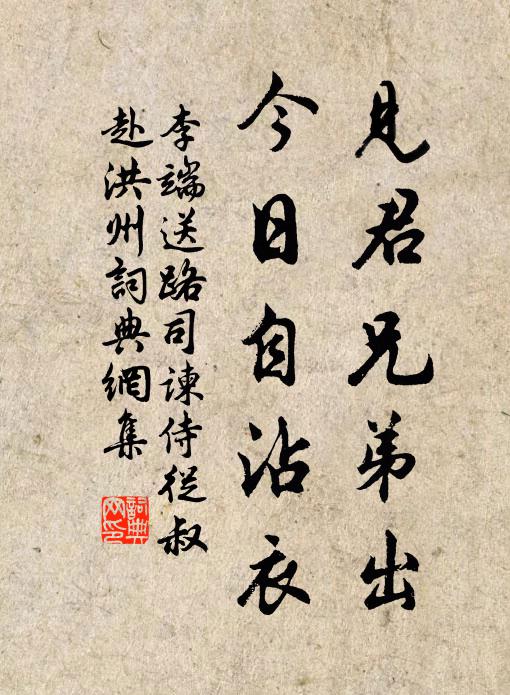 見君兄弟出
今日自沾衣
李端送路司諫侍從叔
赴洪州詞典網集
詞典
网印